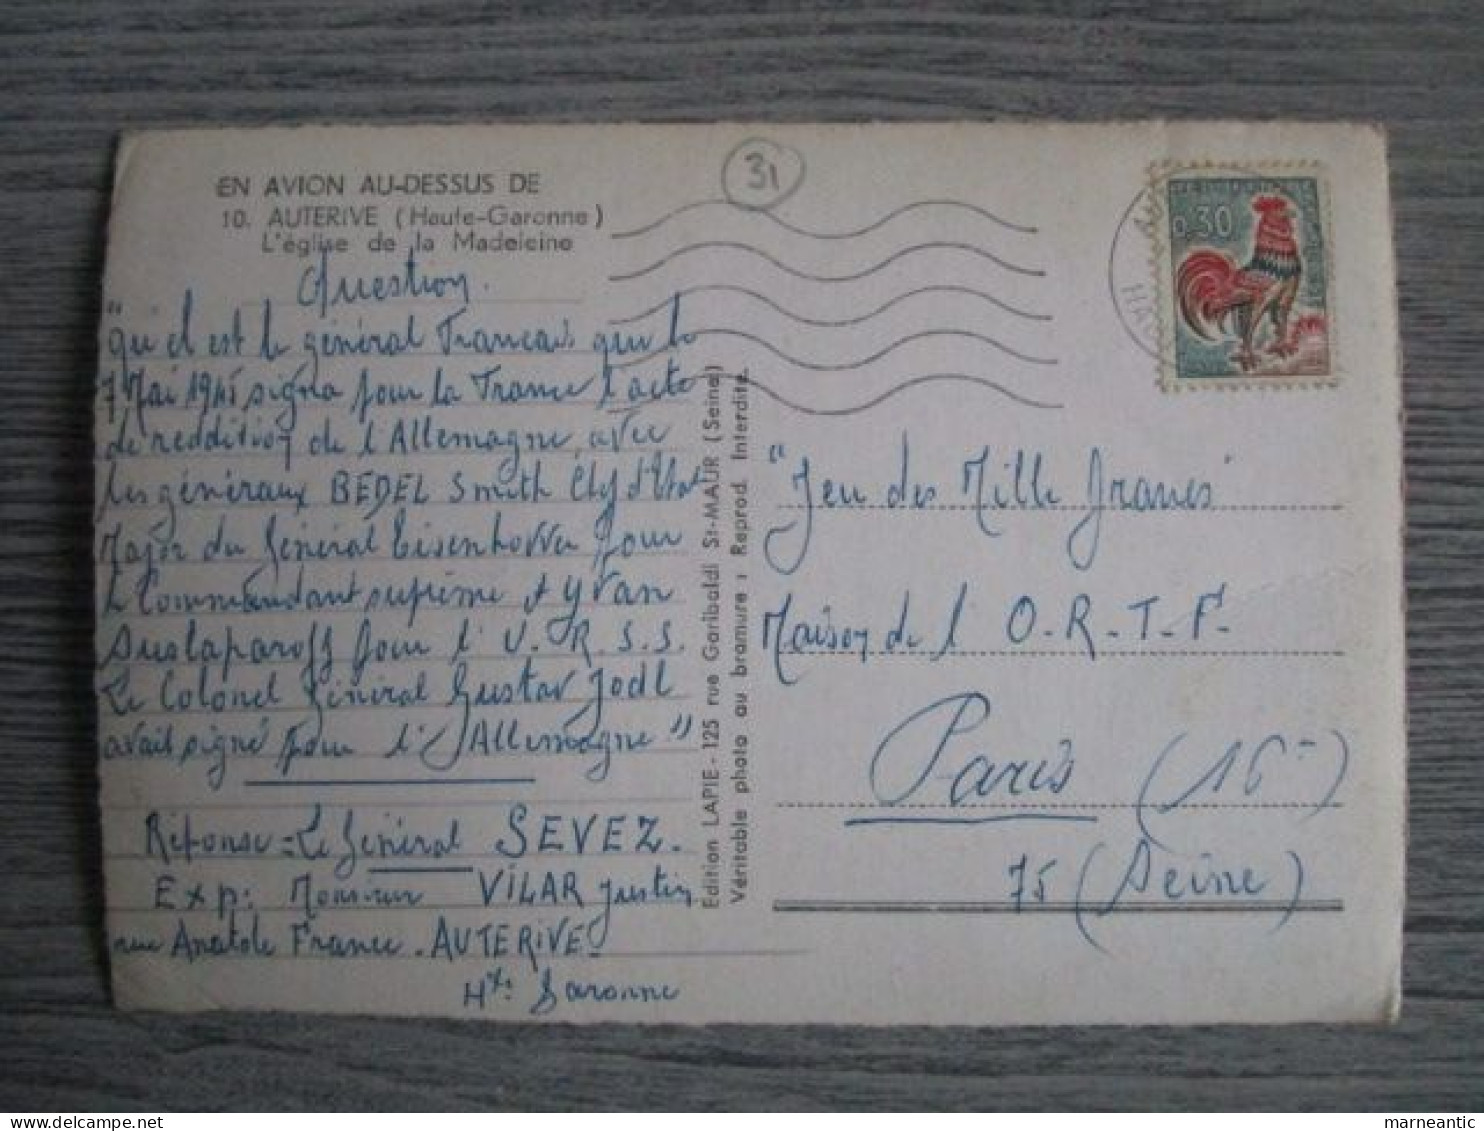 EN AVION AU-DESSUS DE
10. AUTERIVE (Haute-Garonne)
L'église de la Madeleine
Question.
"Qu'el est le général Francais que le
7 Mai 1945 signa pour la France l'acte
de reddition de l'Allemagne, avec
les généraux BEDEL Smith Chef d'Etat
Major du Général Eisenhower pour
le Commandant suprême et yvan
Suslaparoff pour l' U.R.S.S.
Le Colonel Général Gustav Jodl
avait signé pour l'Allemagne"
Réponse = Le Général SEVEZ.
Exp: Monsieur VILAR Justin
rue Anatole France - AUTERIVE -
Hte Garonne
Edition LAPIE - 125 rue Garibaldi St-MAUR (Seine)
Véritable photo au bromure : Reprod. Interdite.
31
0,30
"Jeu des Mille Francs"
Maison de l' O-R-T-F-
Paris (16-)
75 (Seine)
marneantic